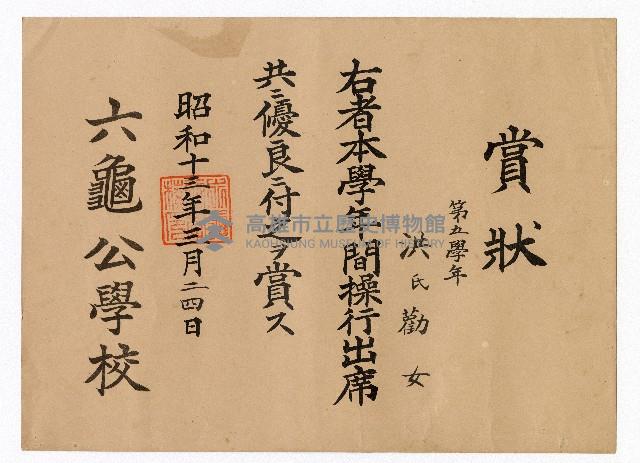 賞狀
第五學年
洪氏勸女
右者本學年間操行出席
共ニ優良ニ付之ヲ賞ス
昭和十三年三月二四日
六龜公學校
高雄市立歷史博物館
KAOHSIUNG MUSEUM OF HISTORY